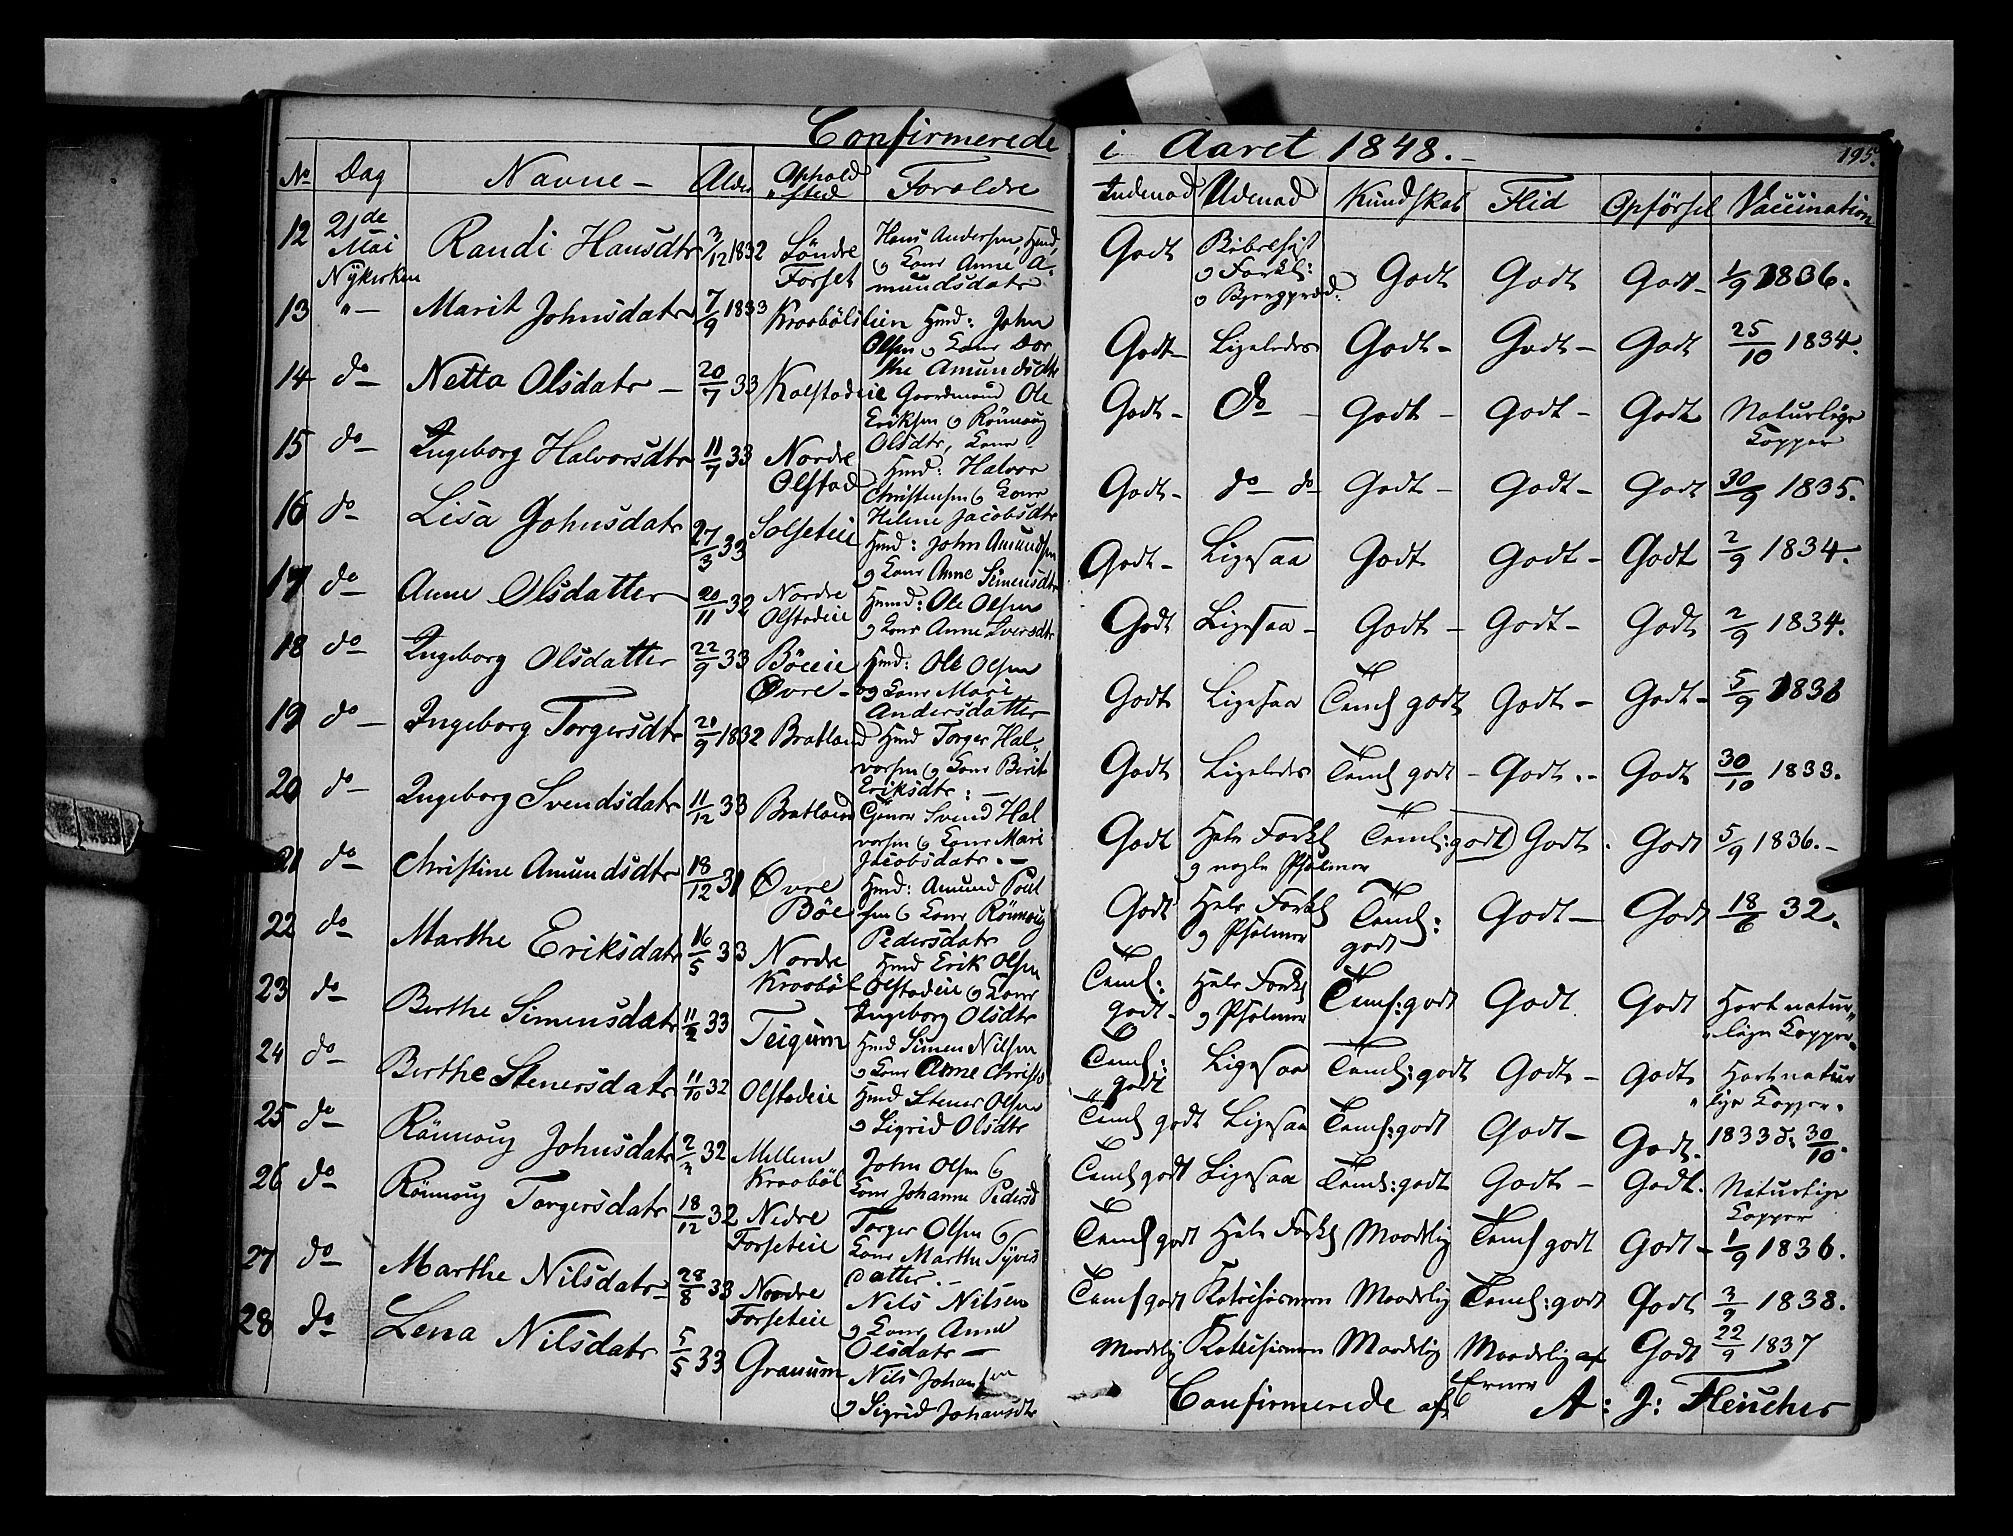 Confirmerede i Aaret 1848.-
195.
No Dag Navne - Alder Ophold Forældre Indenad Udenad Kundskab Flid Opförsel Vaccination
sted
12 21de Mai Nykirken Randi Hansdtr 3/12 1832 Söndre Forset Hans Andersen, Hmd, og Kone Anne Amundsdatr Godt Bibelhist og Forkl: og Bjergpræd: Godt Godt Godt - 1/9 1836.
13 "- Marit Johnsdatr 7/9 1833 Kraaböls lien Hmd: John Olsen og Kone Dorthe Amundsdtr Godt - Ligeledes Godt - Godt - Godt 25/10 1834.
14 do - Netta Olsdatr - 20/7 33 Kolstadeie Gaardmand Ole Eriksen og Rönnoug Olsdtr, Kone Godt - do - Godt - Godt - Godt Naturlige Kopper
15 do - Ingeborg Halvorsdtr 11/7 33 Nordre Olstad Hmd: Halvor Christensen og Kone Helene Jacobsdtr Godt - do - do Godt - Godt - Godt 30/9 1835.
16 do - Lisa Johnsdatr 27/3 33 Solseteie Hmd: John Amundsen og Kone Anne Simensdtr Godt - Ligesaa Godt Godt - Godt 2/9 1834.
17 do - Anne Olsdatter 20/11 32 Nordre Olstadeie Hmd: Ole Olsen og Kone Anne Iversdtr Godt Ligesaa - Godt - Godt - Godt 2/9 1834.
18 do - Ingeborg Olsdatter 22/9 33 Böeie Øvre - Hmd: Ole Olsen og Kone Mari Andersdatter Godt Ligesaa Teml godt Godt - Godt - 5/9 1836
19 do - Ingeborg Torgersdtr 20/9 1832 Bratland Hmd Torger Halvorsen og Kone Berit Eriksdtr: - Godt Ligeledes Teml godt - Godt. - Godt 30/10 1833.
20 do - Ingeborg Svendsdatr 11/12 33 Bratland Svend Halvorsen og Kone Mari Jacobsdatr. - Godt Hele Forkl og nogle Psalmer Teml: godt Godt. Godt 5/9 1836. -
21 do - Christine Amundsdtr 18/12 31 Øvre Böe Hmd: Amund Poulsen og Kone Rönnoug Pedersdatr Godt Hele Forkl og Psalmer Teml: godt Godt - Godt 18/6 32.
22 do - Marthe Eriksdatr 16/5 33 Nordre Kraaböl Hmd Erik Olsen Olstadeie og Kone Ingeborg Olsdtr Teml: godt - Hele Forkl og Psalmer Teml: godt Godt Godt Havt naturlige Kopper.
23 do - Berthe Simensdatr 11/2 33 Teigum Hmd Simen Nilsen og Kone Anne Christsd Teml: godt Ligesaa Teml: godt Godt - Godt Havt naturlige Kopper.
24 do - Berthe Stenersdatr 11/10 32 Olstadeie Hmd Stener Olsen og Sigrid Olsdtr Teml godt Ligesaa Teml: godt Godt - Godt. 1833 d. 30/10.
25 do - Rönnoug Johnsdatr 32 Mellem Kraaböl John Olsen og Kone Johanne Pedersd Teml godt Ligesaa Teml: godt Godt - Godt. Naturlige Kopper
26 do - Rönnoug Torgersdatr 18/12 32 Nedre Forseteie Torger Olsen og Kone Marthe Syversdatter. - Teml godt Hele Forkl Maadelig Teml godt Godt - 1/9 1836.
27 do - Marthe Nilsdatr - 28/8 33 Nordre Forseteie Nils Nilsen og Kone Anne Olsdatr - Teml godt Katechismen Maadelig Teml: godt Godt 3/9 1838.
28 do - Lena Nilsdatr 5/5 33 Granum Nils Johansen og Sigrid Johansdtr Maadelig Katechismen Maadelig Maadelig af Evner Godt 22/9 1837
Confirmerede af A: J: Fleischer